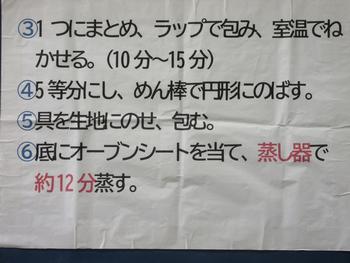 ③1つにまとめ、ラップで包み、室温でね
かせる。(10分～15分)
④5等分にし、めん棒で円形にのばす。
⑤具を生地にのせ、包む。
⑥底にオーブンシートを当て、蒸し器で
約12分蒸す。